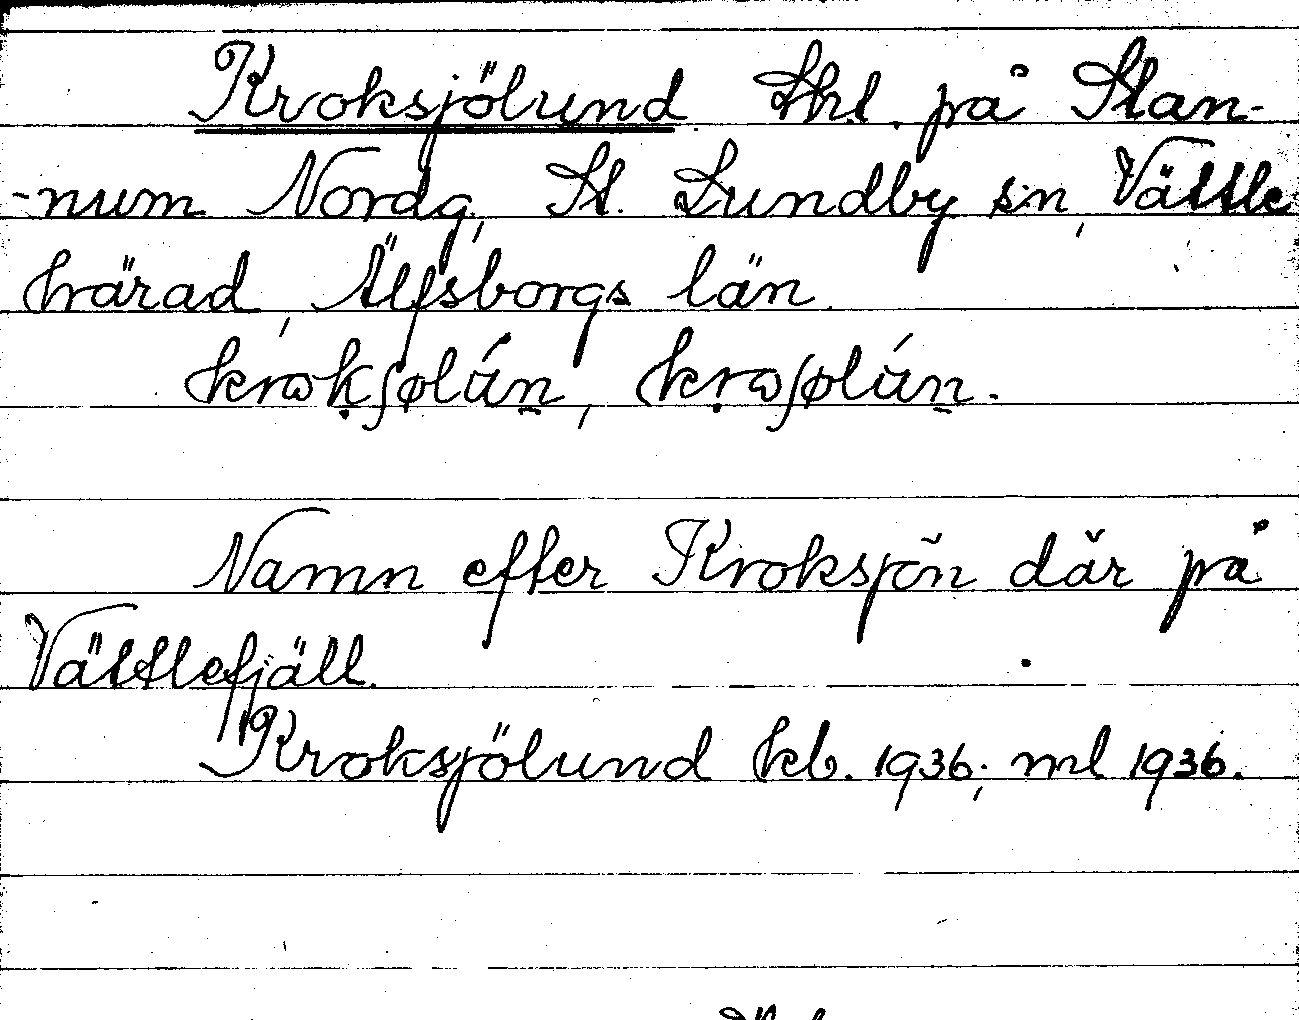 Kroksjölund Shl. på Stan-
-num Nordg, St. Lundby sn, Vättle
härad, Älfsborgs län.
krωkʃølún, krωʃølún.
Namn efter Kroksjön där på
Vättlefjäll.
Kroksjölund kb. 1936; ml 1936.